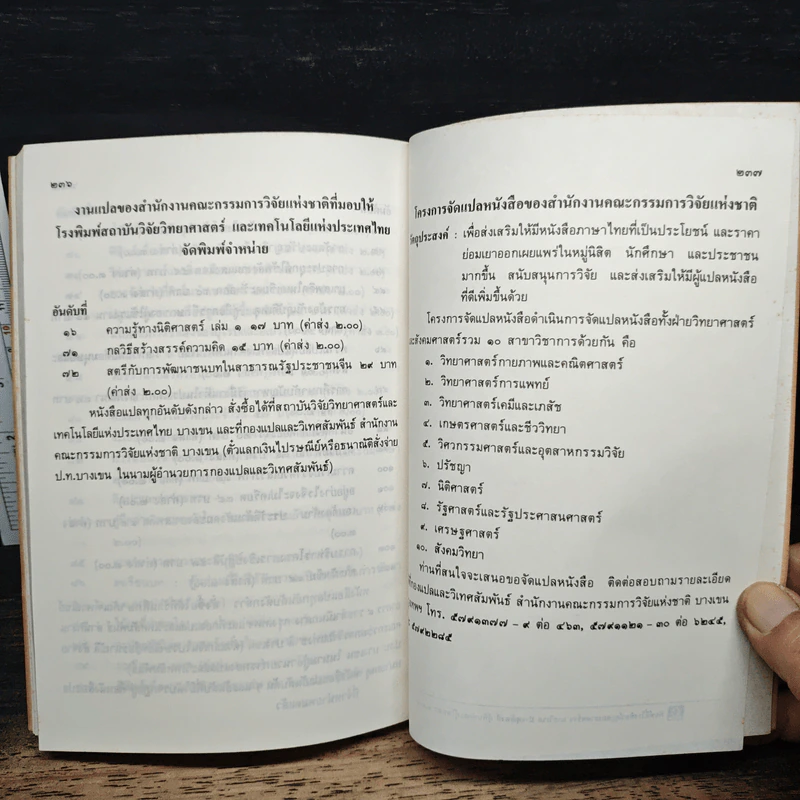 ๒๓๖
งานแปลของสำนักงานคณะกรรมการวิจัยแห่งชาติที่มอบให้
โรงพิมพ์สถาบันวิจัยวิทยาศาสตร์ และเทคโนโลยีแห่งประเทศไทย
จัดพิมพ์จำหน่าย
อันดับที่
๑๖ ความรู้ทางนิติศาสตร์ เล่ม ๑ ๑๗ บาท (ค่าส่ง ๒.๐๐)
๗๑ กลวิธีสร้างสรรค์ความคิด ๑๕ บาท (ค่าส่ง ๒.๐๐)
๗๒ สตรีกับการพัฒนาชนบทในสาธารณรัฐประชาชนจีน ๒๙ บาท
(ค่าส่ง ๒.๐๐)
หนังสือแปลทุกอันดับดังกล่าว สั่งซื้อได้ที่สถาบันวิจัยวิทยาศาสตร์และ
เทคโนโลยีแห่งประเทศไทย บางเขน และที่กองแปลและวิเทศสัมพันธ์ สำนักงาน
คณะกรรมการวิจัยแห่งชาติ บางเขน (ตั๋วแลกเงินไปรษณีย์หรือธนาณัติสั่งจ่าย
ป.ท.บางเขน ในนามผู้อำนวยการกองแปลและวิเทศสัมพันธ์)
๒๓๗
โครงการจัดแปลหนังสือของสำนักงานคณะกรรมการวิจัยแห่งชาติ
วัตถุประสงค์ : เพื่อส่งเสริมให้มีหนังสือภาษาไทยที่เป็นประโยชน์ และราคา
ย่อมเยาออกเผยแพร่ในหมู่นิสิต นักศึกษา และประชาชน
มากขึ้น สนับสนุนการวิจัย และส่งเสริมให้มีผู้แปลหนังสือ
ที่ดีเพิ่มขึ้นด้วย
โครงการจัดแปลหนังสือดำเนินการจัดแปลหนังสือทั้งฝ่ายวิทยาศาสตร์
และสังคมศาสตร์รวม ๑๐ สาขาวิชาการด้วยกัน คือ
๑. วิทยาศาสตร์กายภาพและคณิตศาสตร์
๒. วิทยาศาสตร์การแพทย์
๓. วิทยาศาสตร์เคมีและเภสัช
๔. เกษตรศาสตร์และชีววิทยา
๕. วิศวกรรมศาสตร์และอุตสาหกรรมวิจัย
๖. ปรัชญา
๗. นิติศาสตร์
๘. รัฐศาสตร์และรัฐประศาสนศาสตร์
๙. เศรษฐศาสตร์
๑๐. สังคมวิทยา
ท่านที่สนใจจะเสนอขอจัดแปลหนังสือ ติดต่อสอบถามรายละเอียด
ที่กองแปลและวิเทศสัมพันธ์ สำนักงานคณะกรรมการวิจัยแห่งชาติ บางเขน
โทร. ๕๗๙๑๓๗๗ - ๙ ต่อ ๔๖๓, ๕๗๙๑๑๒๑ - ๓๐ ต่อ ๖๒๔๕,
๕๗๙๒๒๘๕